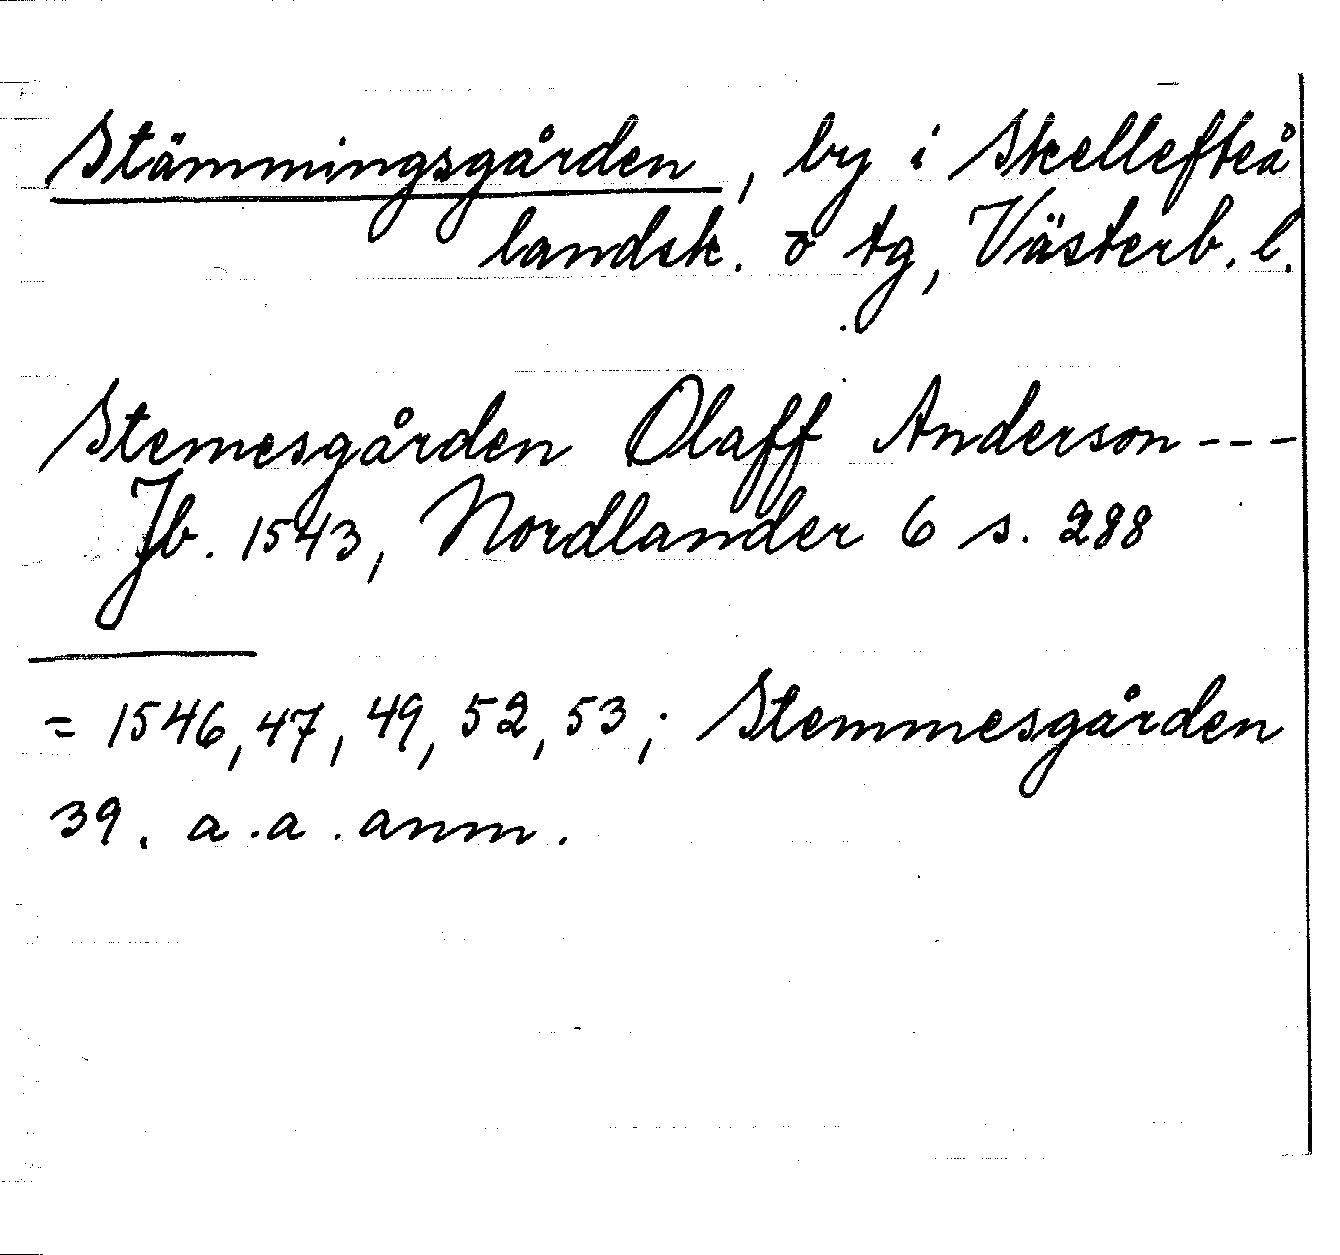 Stämningsgården, by i Skellefteå
landsk. o tg, Västerb. l.
Stemesgården Olaff Anderson ---
Jb. 1543, Nordlander 6 s. 288
= 1546, 47, 49, 52, 53; Stemmesgården
39. a.a. anm.